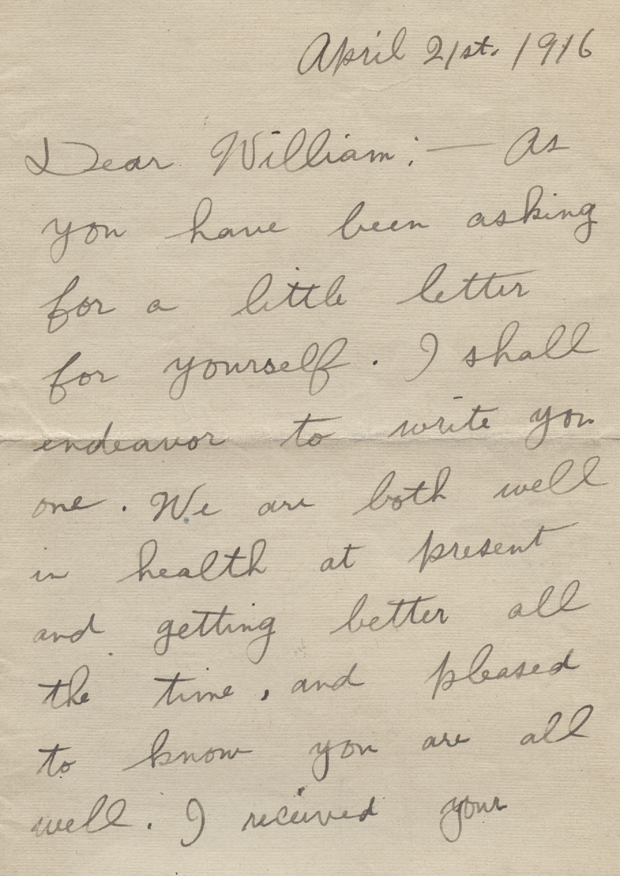 April 21st. 1916
Dear William: — As
you have been asking
for a little letter
for yourself. I shall
endeavor to write you
one. We are both well
in health at present
and getting better all
the time, and pleased
to know you are all
well. I received your